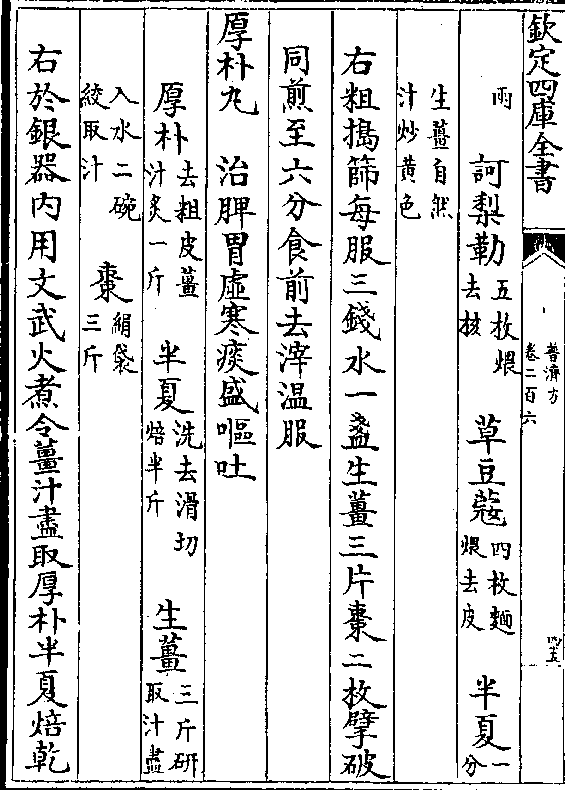 欽定四庫全書
普濟方
卷二百六
四五
兩　訶梨勒五枚煨去核　草豆蔻四枚麵煨去皮　半夏一分
生薑自然汁炒黃色
右粗搗篩每服三錢水一盞生薑三片棗二枚擘破
同煎至六分食前去滓温服
厚朴丸　治脾胃虛寒痰盛嘔吐
厚朴去粗皮薑汁炙一斤　半夏洗去滑切焙半斤　生薑三斤研取汁盡
入水二碗絞取汁　棗絹袋三斤
右於銀器内用文武火煮令薑汁盡取厚朴半夏焙乾